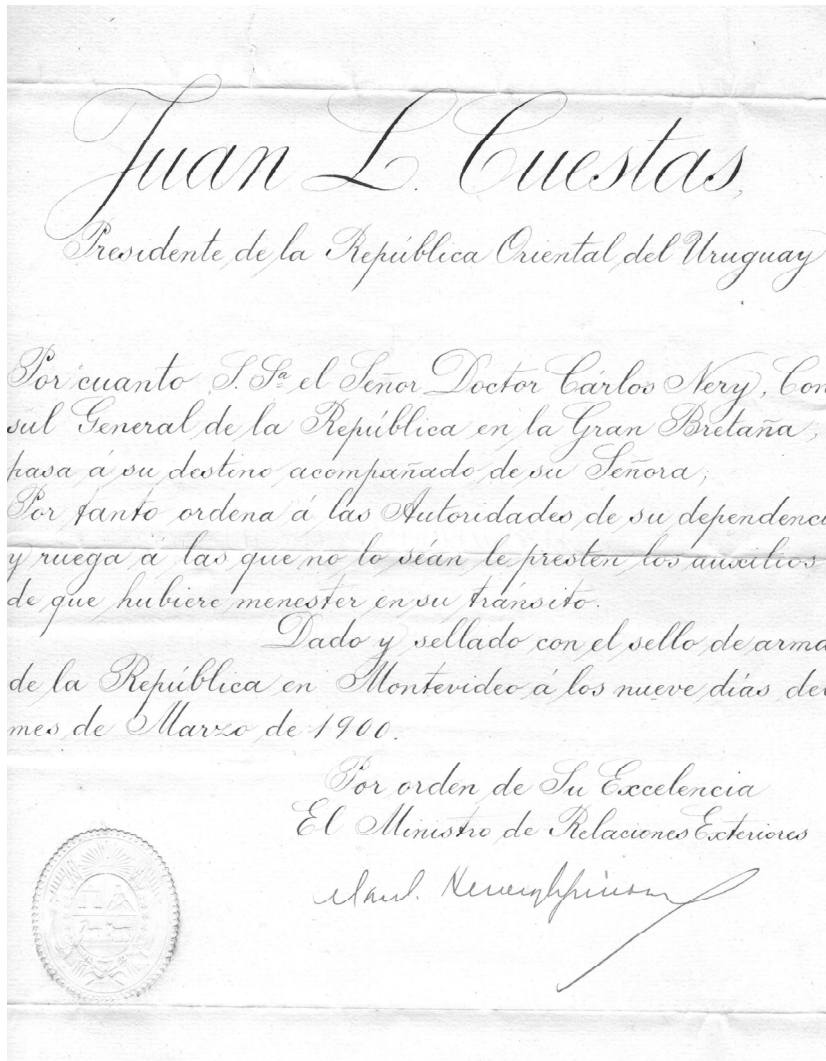 Juan L. Cuestas,
Presidente de la República Oriental del Uruguay
Por cuanto S. Sª el Señor Doctor Cárlos Nery, Con
sul General de la República en la Gran Bretaña,
pasa á su destino acompañado de su Señora;
Por tanto ordena á las Autoridades de su dependenci
y ruega á las que no lo séan le presten los auxilios
de que hubiere menester en su tránsito.
Dado y sellado con el sello de arma
de la República en Montevideo á los nueve días de
mes de Marzo de 1900.
Por orden de Su Excelencia
El Ministro de Relaciones Exteriores